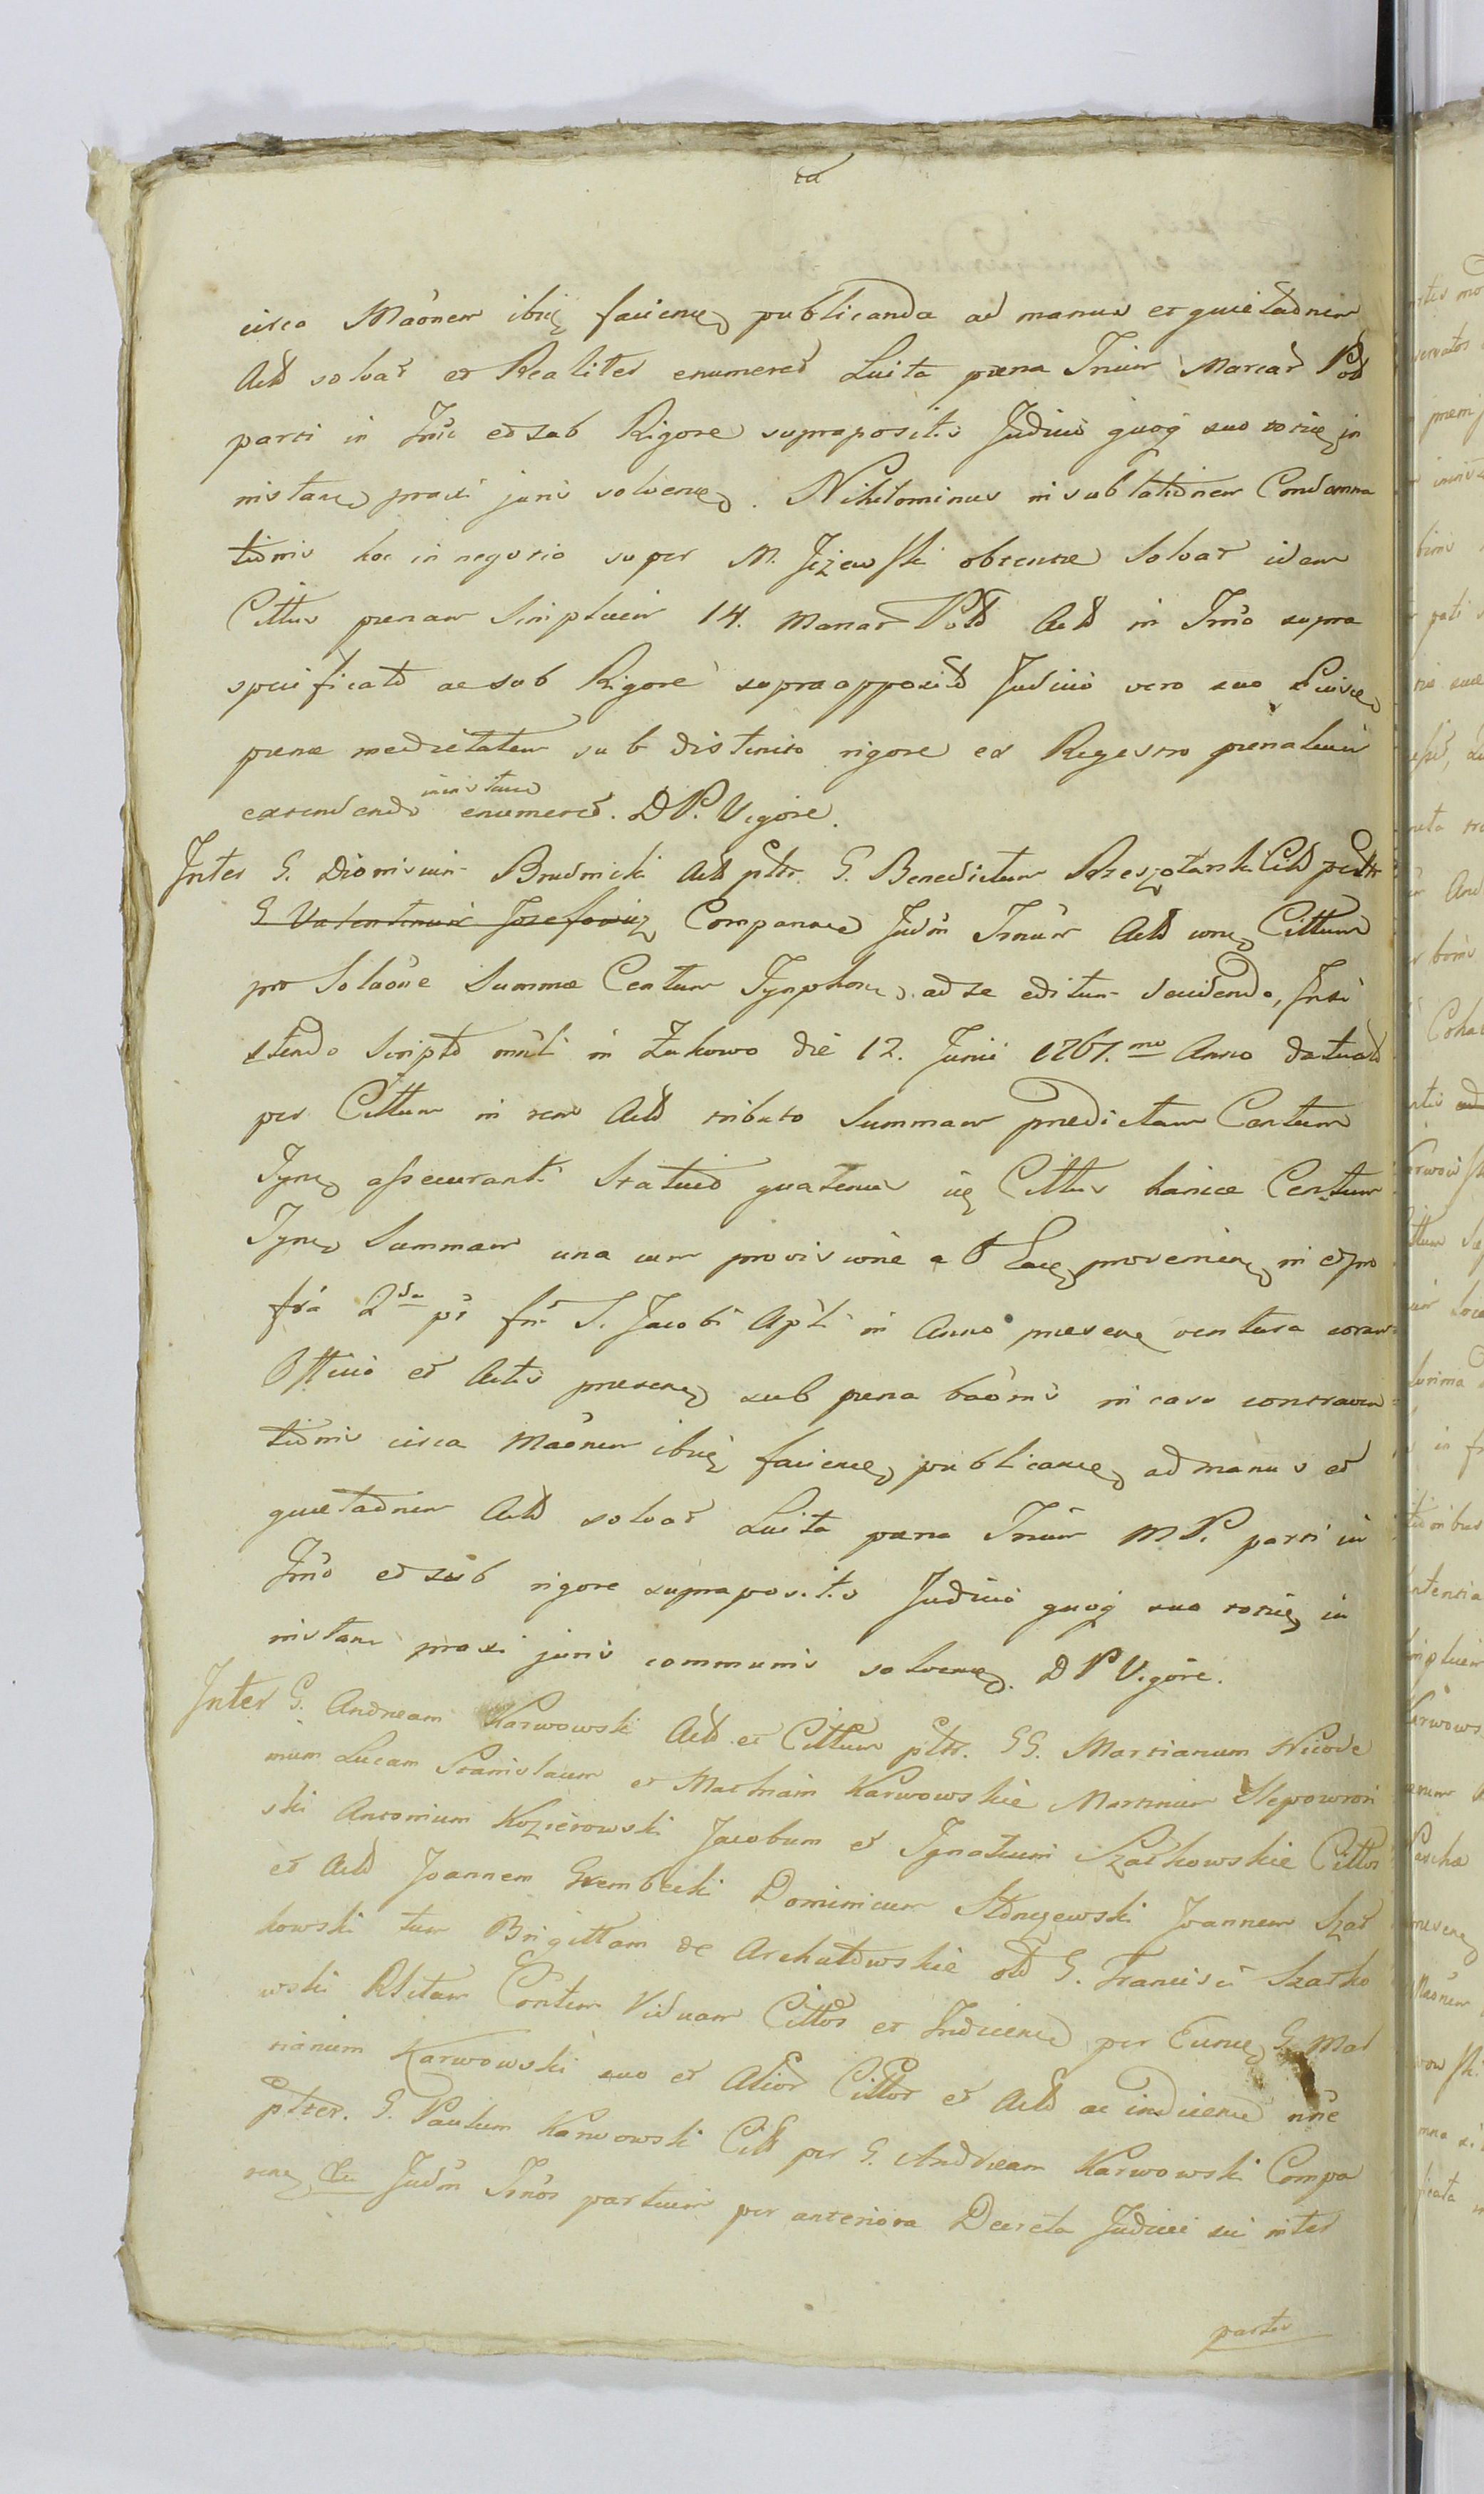 circa Maonem ibiq faciene publicanda ad manus et quietaonem
Actt solvat et Realiter enumeret Luita pæna Triur Marcar Pol
parti in Trmo et sub Rigore supraposit.s Judicio quoq suo totieq in
instane praxi juris solvene. Nihilominus in sublationem Condamna
tionis hoc in negotio super M. Jezewski obtentæ solvat idem
Cittus pænam Simplicem 14. Marcar Poll Actt in Trmo supra
specificato ac sub Rigore supraapposito Judicio vero suo hujus
pænæ medietatem sub distincto rigore ex Regestro pænalium
extendendo instane enumeret. D P. Vigore.
Inter G. Dionisium Brudnicki Actt pltr. G. Benedictum Rzeszotarski Citt peltr
G Valentinum Josefowicz Comparane Judm Trnum Actt cone Cittum
pro Solaone Summæ Centum Tynphone ad se editum Scindendo, Insi
stendo Scripto mnli in Zukowo die 12. Junii 1767.mo Anno datuato
per Cittum in rem Actt tributo Summam prædictam Centum
Tyne assecuranti Statuit quatenus iq Cittus hancce Centum
Tyne Summam una cum provisione ab Eaq provenien in et pro
fra 2da ps fr S. Jacobi Apli in Anno præsene ventura coram
Officio et Actis præsene sub pæna baonis in casu contraven
tionis circa Maonem ibiq faciene publicane ad manus et
quietaonem Actt solvat Luita pæna Trium M P. parti in
Trmo et sub rigore supraposit.s Judicio quoq suo totieq in
instane praxi juris communis solvene. D P Vigore.
Inter G. Andream Karwowski Actt et Cittum pltr. GG. Martianum Nicode
mum Lucam Stanislaum et Mathiam Karwowskie Martinum Slepowron
ski Antonium Kozierowski Jacobum et Ignatium Szatkowskie Cittos
et Actt Joannem Grembecki Dominicum Joannem Szat
kowski tum Brigittam de Archutowskie olt G. Francisci Szatko
wski Rlitam Contem Viduam Cittos et Indicene per Eune G. Mar
tianum Karwowski suo et Alior Cittor et Actt ac indicene nne
pltrer. G. Paulum Karwowski Citt per G. Andream Karwowski Compa
rene Judm Trnos partium per anteriora Decreta Judicii sui inter
partes